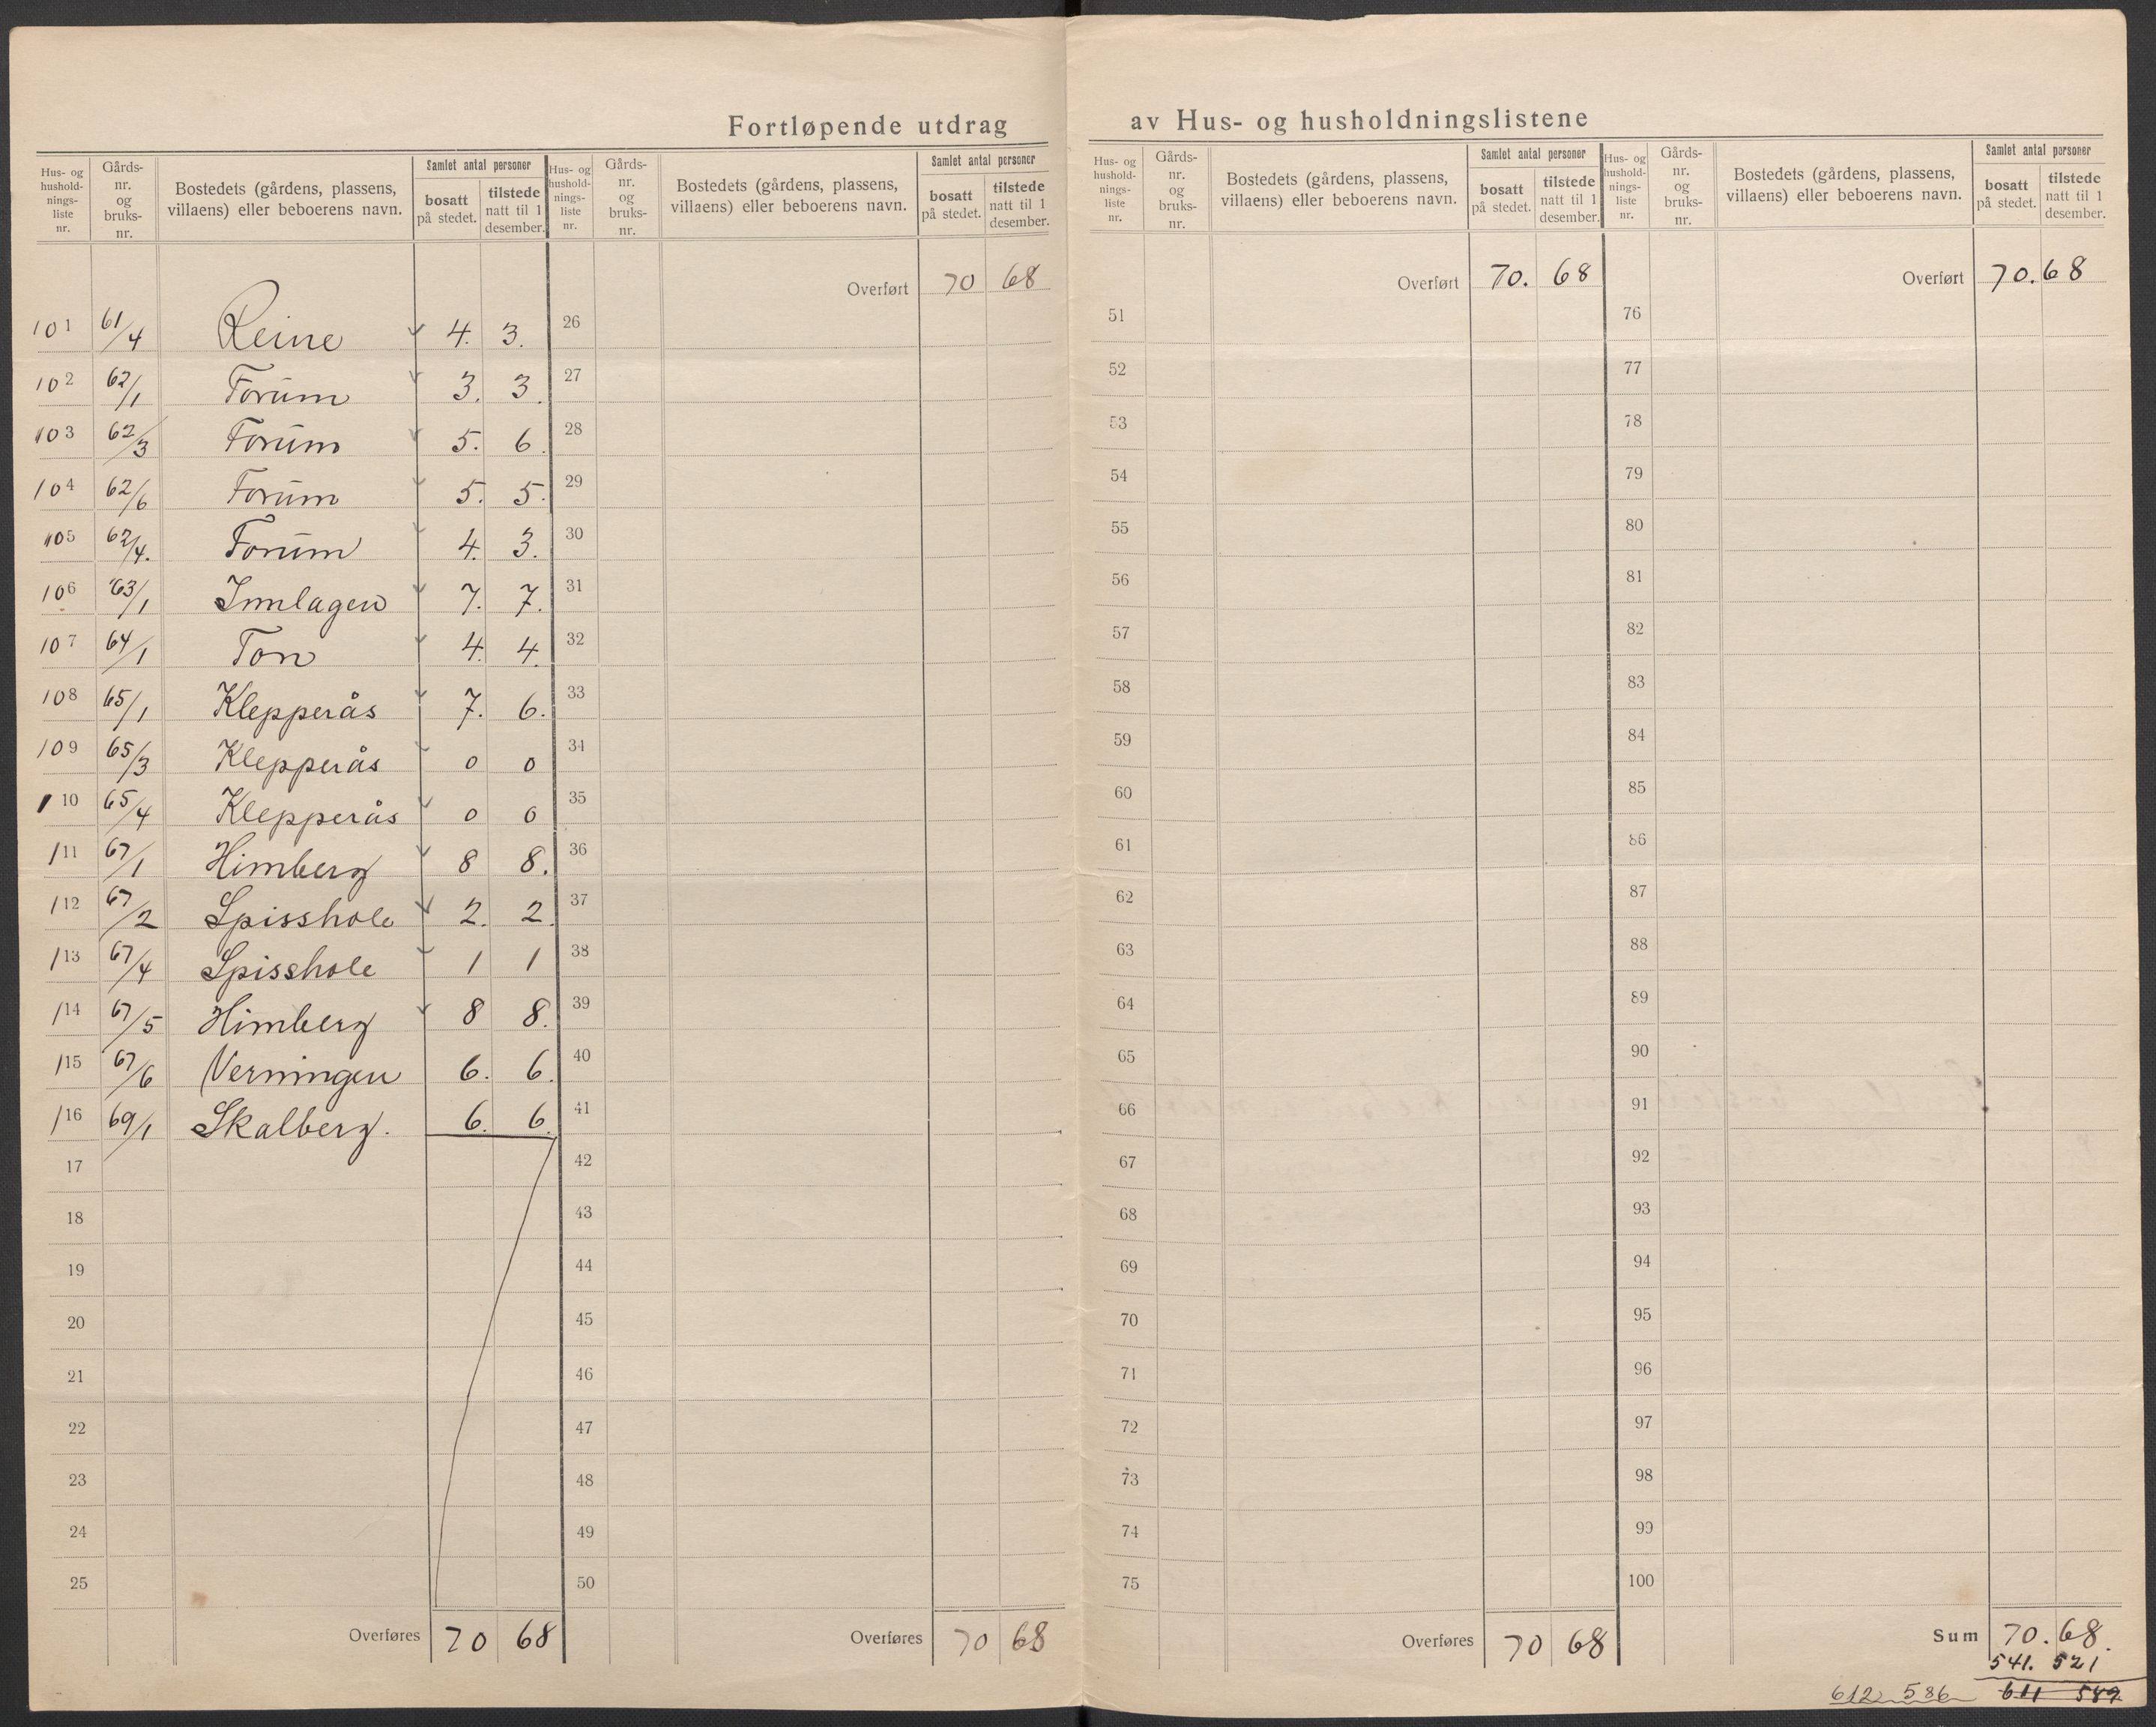 Fortløpende utdrag av Hus- og husholdningslistene
Hus- og hushold- nings- liste nr. | Gårds- nr. og bruks- nr. | Bostedets (gårdens, plassens, villaens) eller beboerens navn. | Samlet antal personer | bosatt på stedet. | tilstede natt til 1 desember.
Hus- og hushold- nings- liste nr. | Gårds- nr. og bruks- nr. | Bostedets (gårdens, plassens, villaens) eller beboerens navn. | Samlet antal personer | bosatt på stedet. | tilstede natt til 1 desember.
Hus- og hushold- nings- liste nr. | Gårds- nr. og bruks- nr. | Bostedets (gårdens, plassens, villaens) eller beboerens navn. | Samlet antal personer | bosatt på stedet. | tilstede natt til 1 desember.
Hus- og hushold- nings- liste nr. | Gårds- nr. og bruks- nr. | Bostedets (gårdens, plassens, villaens) eller beboerens navn. | Samlet antal personer | bosatt på stedet. | tilstede natt til 1 desember.
101 61/4 Reine 4. 3.
102 62/1 Forum 3. 3.
103 62/3 Forum 5. 6.
104 62/6 Forum 5. 5.
105 62/4. Forum 4. 3.
106 63/1 Innlagen 7. 7.
107 64/1 Ton 4. 4.
108 65/1 Klepperås 7. 6.
109 65/3 Klepperås 0 0
110 65/4 Klepperås 0 0
111 67/1 Himberg 8 8.
112 67/2 Spisshole 2. 2.
113 67/4 Spisshole 1 1
114 67/5 Himberg 8 8.
115 67/6 Verningen 6. 6.
116 69/1 Skalberg. 6. 6.
17
18
19
20
21
22
23
24
25
Overføres 70 68
Overført 70 68
26
27
28
29
30
31
32
33
34
35
36
37
38
39
40
41
42
43
44
45
46
47
48
49
50
Overføres 70 68
Overført 70. 68
51
52
53
54
55
56
57
58
59
60
61
62
63
64
65
66
67
68
69
70
71
72
73
74
75
Overføres 70 68
Overført 70. 68
76
77
78
79
80
81
82
83
84
85
86
87
88
89
90
91
92
93
94
95
96
97
98
99
100
Sum 70. 68.
541. 521
612 586 611 589